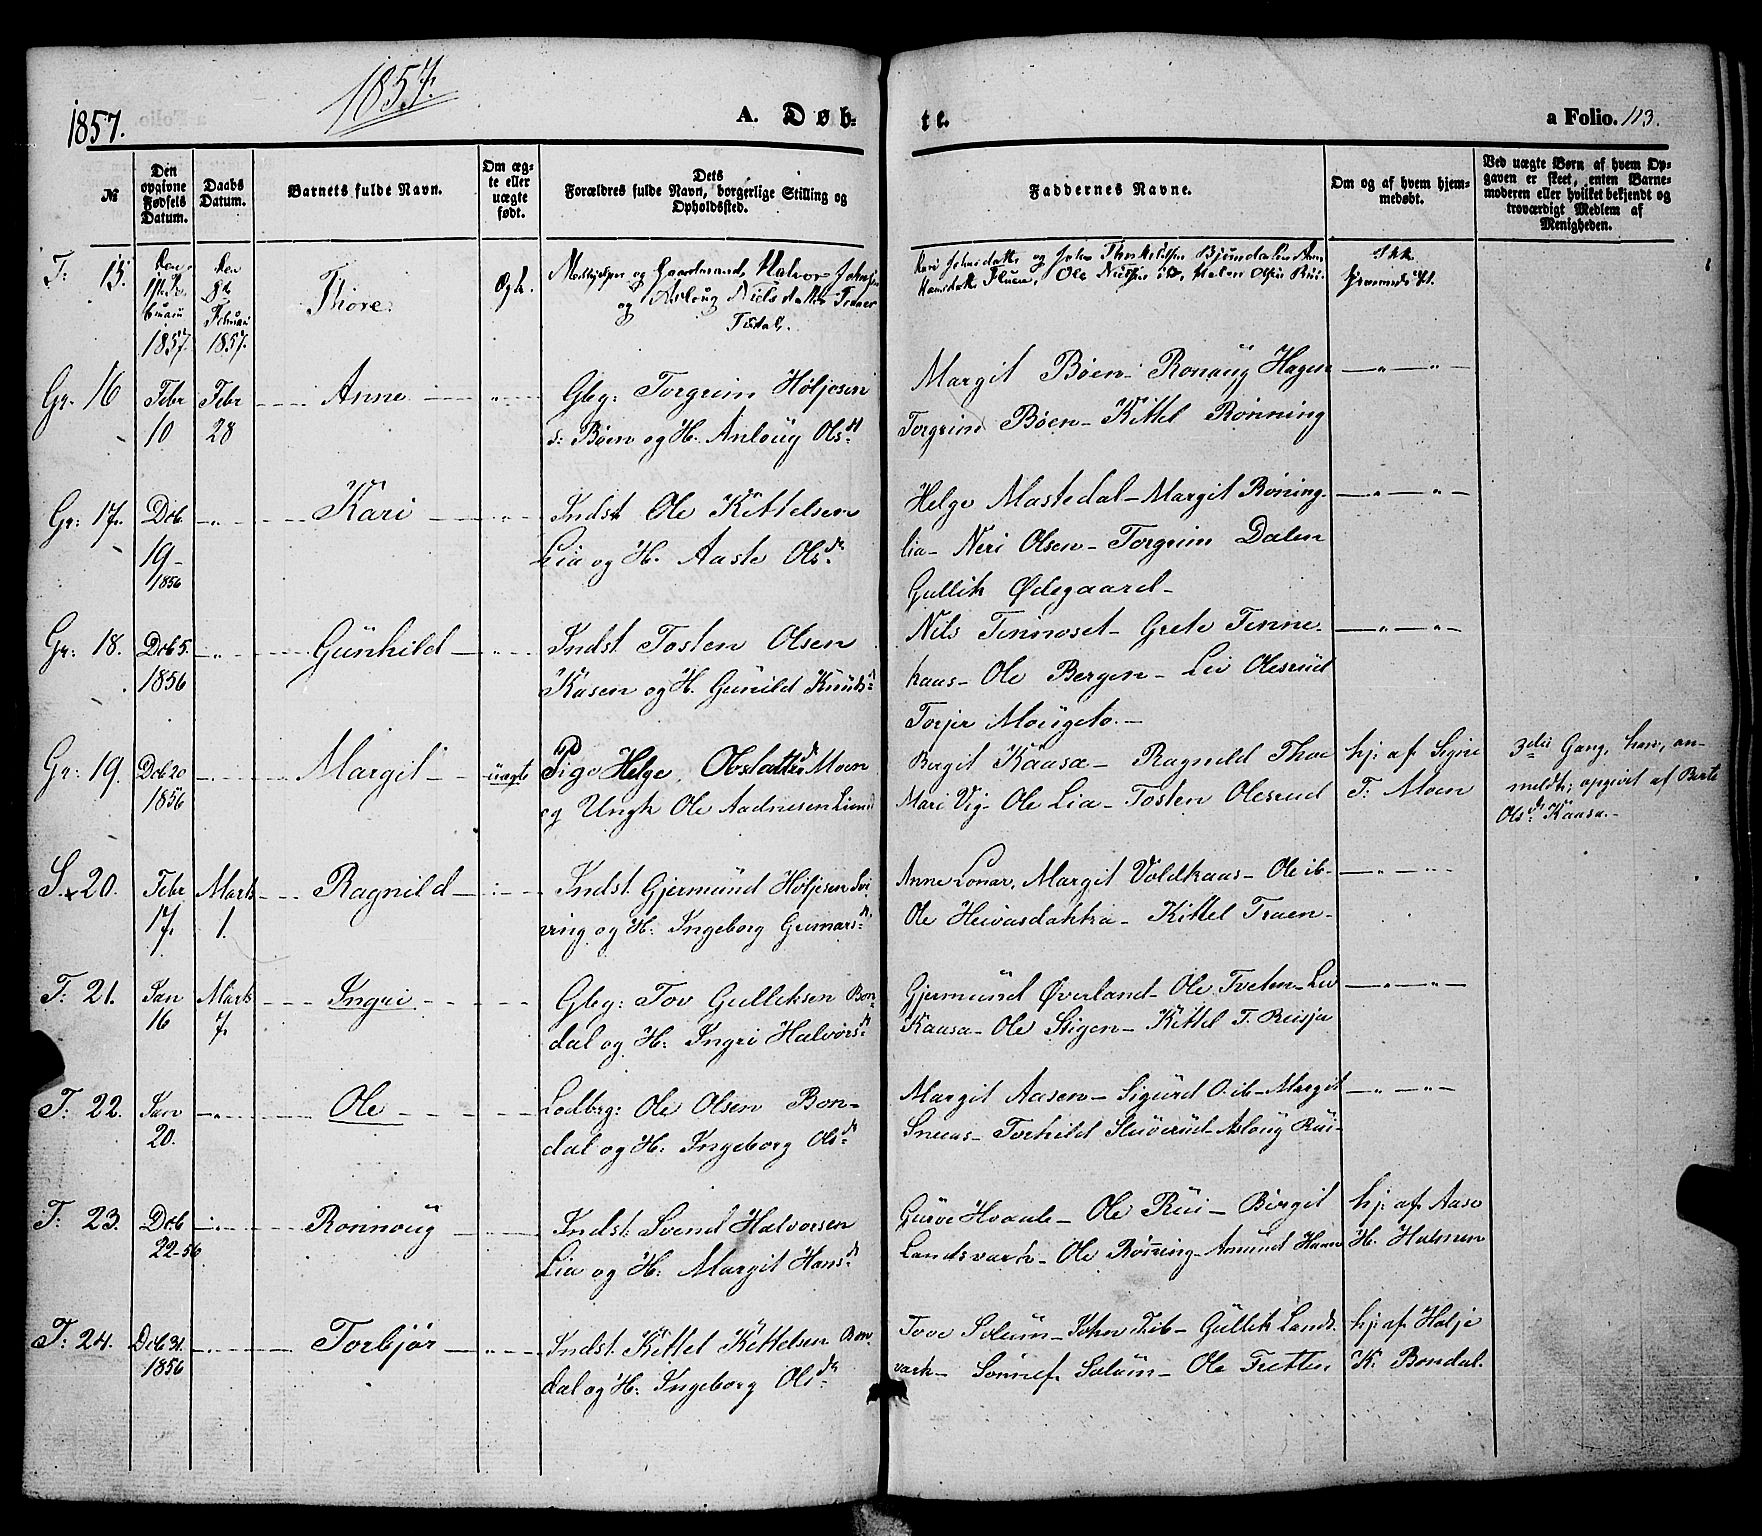 1857.
1857.
A. Døb-
te.
a Folio. 113.
№
Den opgivne Fødsels Datum.
Daabs Datum.
Barnets fulde Navn.
Om ægte eller uægte født.
Dets Forældres fulde Navn, borgerlige Stilling og Opholdssted.
Faddernes Navne.
Om og af hvem hjemmedøbt.
Ved uægte Børn af hvem Opgaven er skeet, enten Barnemoderen eller hvilket bekjendt og troværdigt Medlem af Menigheden.
T: 15.
1857.
den 8de Februari 1857.
Thore
Ægte.
Gaardmand Halvor
og Asloug Nielsdatter
Ole
Gr. 16
Febr 10
Febr 28
Anne
Gbg: Torgrim Høljesen
s: Bøen og H. Anloüg Olsdt
Margit Bøen - Ronaüg Hagen
Torgrim Bøen - Kittel Rønning
Gr: 17.
Deb. 19 - 1856
Kari
Indst Ole Kittelsen
Lia og H. Aaste Olsdr
Helge Mastedal - Margit Røning
lia - Neri Olsen - Torgrim Dalen
Gullik Ødegaard -
Gr: 18.
Deb 5. 1856
Günhild
Indst Tosten Olsen
Kasen og H. Gunild Knüds
Nils Tinnoset - Grete Tinne
haus - Ole Bergen - Liv Olesrüd
Torjer Moügeto. -
Gr: 19.
Deb 20 1856
Margit
üægte
Pige Helge Olsdatter Moen
og Ungk Ole Aadnesen
Birgit Kaasa - Ragnild Thoe
Mari Vig - Ole Lia - Tosten Olesrud
hj: af Signe
T: Moen
3die Gang, han, an-
meldt; opgivet af Berte
Olsdr Kaasa. -
S. 20.
Febr 17.
Marts 1.
Ragnild
Indst. Gjermünd Høljesen
ving og H: Ingeborg Gumars
Anne Lonar, Margit Voldhaas - Ole ib-
Ole - Kittel Traen -
T: 21.
Jan 16
Marts 7.
Ingri
Gbg: Tov Gulliksen Bon-
dal og H: Ingri Halvors
Gjermünd Øverland - Ole Tveten - Liv
Kaasa - Ole Stigen - Kittel T. Rusja
T: 22.
Jan 20.
Ole
Ole Olsen Bon-
dal og H: Ingeborg Olsdr
Margit Aasen - Sigurd O. ib - Margit
Torhild - Asloüg Rüi -
T: 23.
Deb 22-56
Ronnoüg
Indst: Svend Halvorsen
Lia og H: Margit Hansdr
Gürve Hvaale - Ole Rüi - Birgit
Landsvark - Ole Rønning - Amund Haave
hj: af Aase
H. Halmen
T: 24.
Deb 31. 1856
Torbjør
Indst: Kittel Kittelsen Bon-
dal og H: Ingeborg Olsdr
Tove Solüm - John ib - Güllik Lands-
vark - Sønnef. Solüm - Ole Tretten
hj: af Halje
K. Bondal.